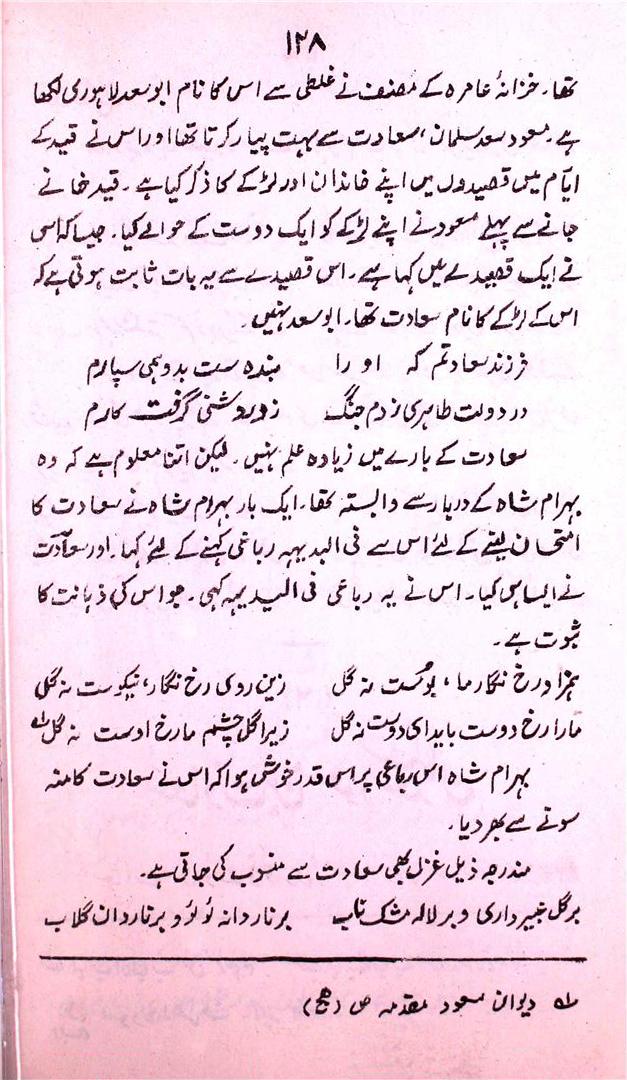 ۱۲۸
تھا۔ خزانۂ عامرہ کے مصنف نے غلطی سے اس کا نام ابو سعد لاہوری لکھا
ہے۔ مسعود سعد سلمان، سعادت سے بہت پیار کرتا تھا اور اس نے قید کے
ایّام میں قصیدوں میں اپنے خاندان اور لڑکے کا ذکر کیا ہے۔ قید خانے
جانے سے پہلے مسعود نے اپنے لڑکے کو ایک دوست کے حوالے کیا۔ جیسا کہ اس
نے ایک قصیدے میں کہا ہے۔ اس قصیدے سے یہ بات ثابت ہوتی ہے کہ
اس کے لڑکے کا نام سعادت تھا۔ ابو سعد نہیں۔
فرزند سعادتم کہ او را بندہ ست بدو ہمی سپارم
در دولت طاہری زدم چنگ زو روشنی گرفت کارم
سعادت کے بارے میں زیادہ علم نہیں۔ لیکن اتنا معلوم ہے کہ وہ
بہرام شاہ کے دربار سے وابستہ تھا۔ ایک بار بہرام شاہ نے سعادت کا
امتحان لینے کے لئے اس سے فی البدیہہ رباعی کہنے کے لئے کہا۔ اور سعادت
نے ایسا ہی کیا۔ اس نے یہ رباعی فی البدیہہ کہی۔ جو اس کی ذہانت کا
ثبوت ہے۔
رخ نگار ما، نہ گل زین روی رخ نگار، نیکوست نہ گل
ما را رخ دوست باید ای دوست نہ گل زیرا گل چشم ما رخ اوست نہ گل؂۱
بہرام شاہ اس رباعی پر اس قدر خوش ہوا کہ اس نے سعادت کا منہ
سونے سے بھر دیا۔
مندرجہ ذیل غزل بھی سعادت سے منسوب کی جاتی ہے۔
بر گل عبیر داری و بر لالہ مشک ناب بر نار دانہ لؤلؤ و بر ناردان گلاب
؂۱ دیوان مسعود مقدمہ ص